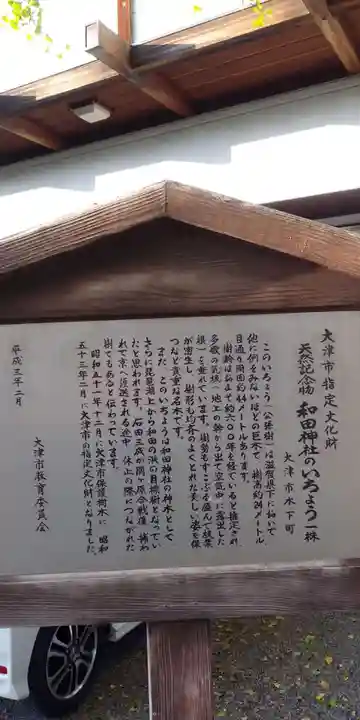 大津市指定文化財
天然記念物 和田神社のいちょう 一株
大津市木下町
このいちょう（公孫樹）は滋賀県下において
他に例をみないほどの巨木で、樹高約24メートル
目通り周囲約4.4メートルあります。
樹齢はおよそ約六〇〇年を経ていると推定され
多数の気根（地上の幹から出て空気中に露出した
根）を垂れています。樹勢もすこぶる盛んで枝葉
が密生し、樹形も均斉のよくとれた美しい姿を保
つなど貴重な名木です。
また、このいちょうは和田神社の神木として
さらに琵琶湖上から和田の浜の目標樹となってい
たと思われます。石田三成が関ヶ原合戦後、捕わ
れて京へ護送される途中、休止の際につながれた
樹でもあると伝わっています。
昭和五十一年十二月に大津市保護樹木に、昭和
五十三年二月に大津市の指定文化財となりました。
平成三年二月
大津市教育委員会